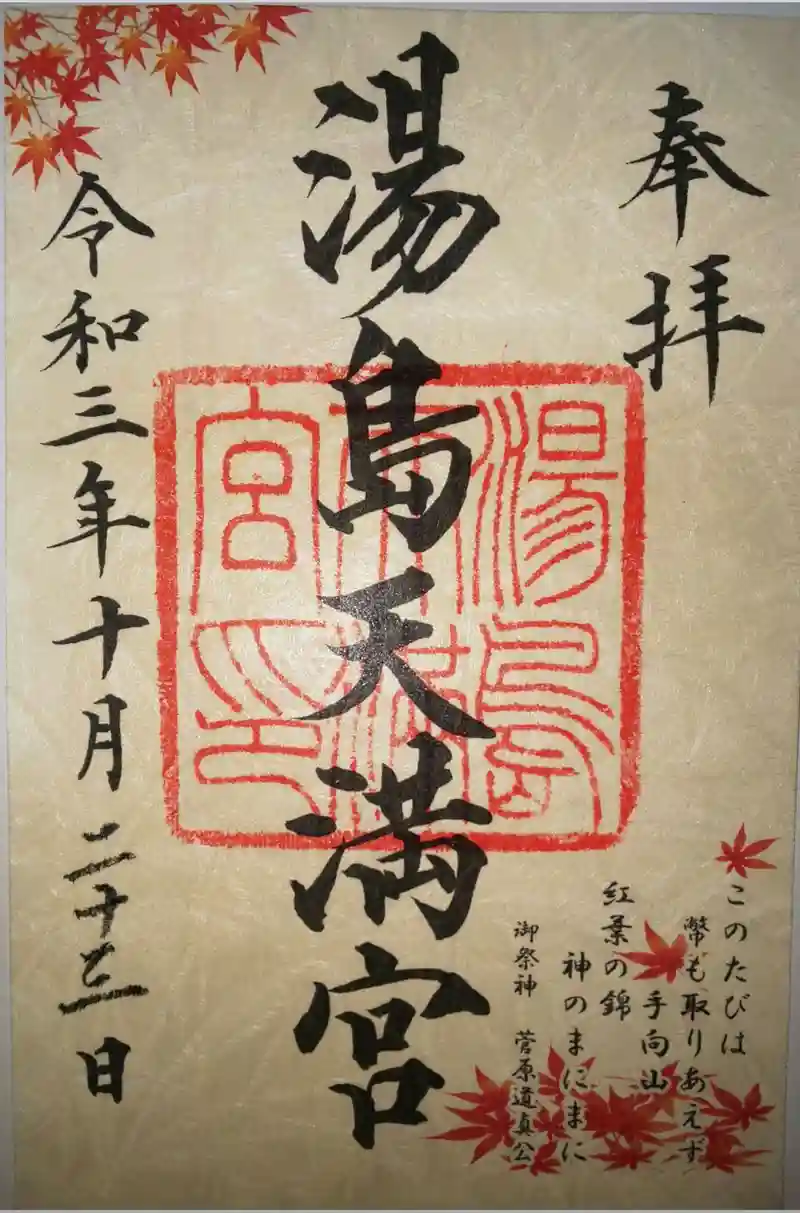 奉拝
湯島天満宮
湯島天満宮印
令和三年十月二十三日
このたびは
幣も取りあへず
手向山
紅葉の錦
神のまにまに
御祭神 菅原道真公